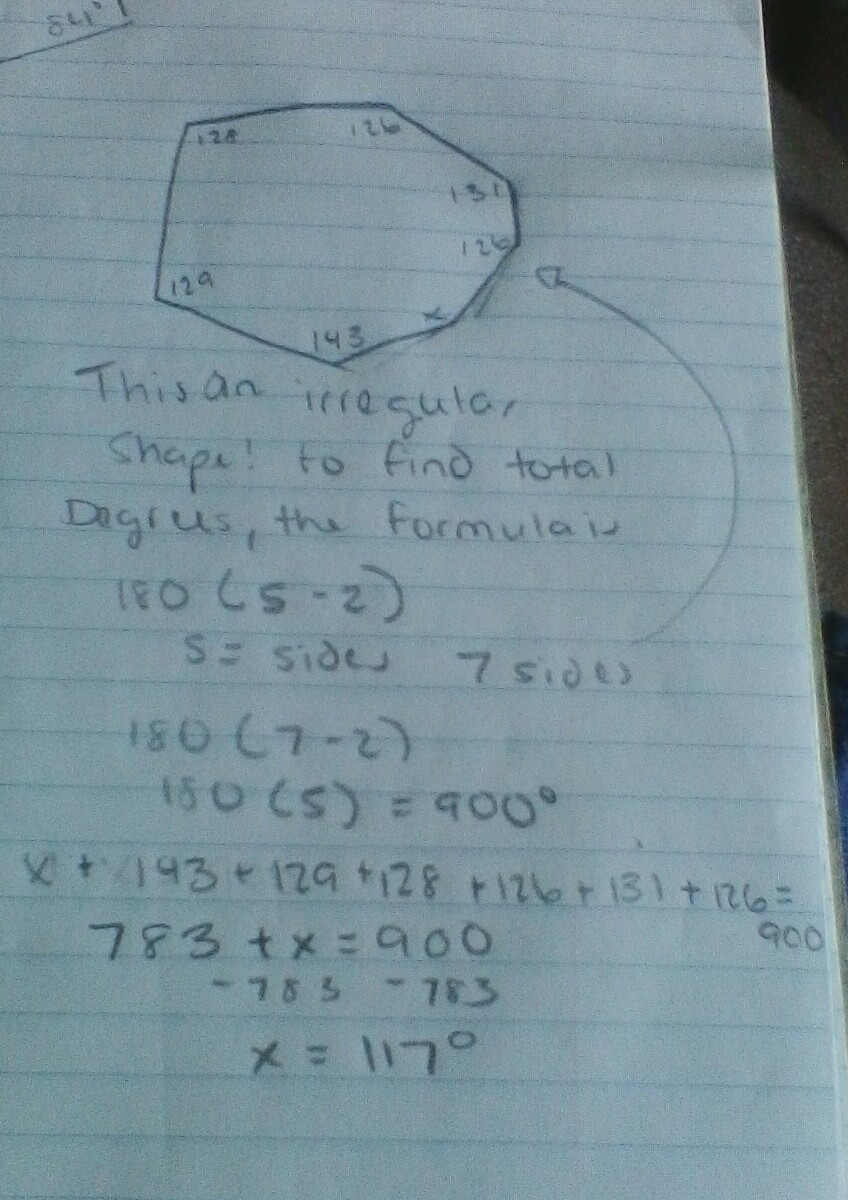 84°
128
126
131
126
129
x
143
This an irregular
Shape! to find total
Degrees, the formula is
180 (s-2)
s= sides 7 sides
180 (7-2)
180 (5) = 900°
x + 143 + 129 + 128 + 126 + 131 + 126 =
900
783 + x = 900
-783 -783
x = 117°